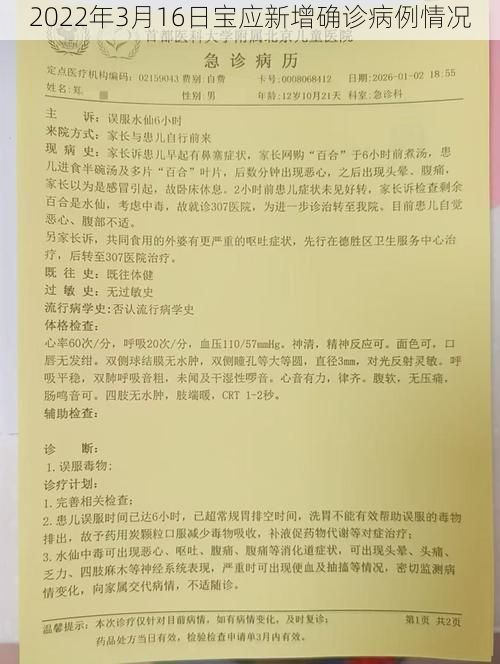 2022年3月16日宝应新增确诊病例情况
首都医科大学附属北京儿童医院
急诊病历
定点医疗机构编码：02159043 费别：自费 卡号：0008068412 日期：2026-01-02 18:55
姓名：郑 性别：男 年龄：12岁10月21天 科室：急诊科
主 诉：误服水仙6小时
来院方式：家长与患儿自行前来
现 病 史：家长诉患儿早起有鼻塞症状，家长网购“百合”于6小时前煮汤，患
儿进食半碗汤及多片“百合”叶片，后数分钟出现恶心，之后出现头晕、腹痛，
家长以为是感冒引起，故卧床休息。2小时前患儿症状未见好转，家长诉检查剩余
百合是水仙，考虑中毒，故就诊307医院，为进一步诊治转至我院。目前患儿自觉
恶心、腹部不适。
另家长诉，共同食用的外婆有更严重的呕吐症状，先行在德胜区卫生服务中心治
疗，后转至307医院治疗。
既 往 史：既往体健
过 敏 史：无过敏史
流行病学史：否认流行病学史
体格检查：
心率60次/分，呼吸20次/分，血压110/57mmHg。神清，精神反应可。面色可。口
唇无发绀。双侧球结膜无水肿，双侧瞳孔等大等圆，直径3mm，对光反射灵敏。呼
吸平稳，双肺呼吸音粗，未闻及干湿性啰音。心音有力，律齐。腹软，无压痛，
肠鸣音可。四肢无水肿，肢端暖，CRT 1-2秒。
辅助检查：
诊 断：
1.误服毒物；
诊疗计划：
1.完善相关检查；
2.患儿误服时间已达6小时，已超常规胃排空时间，洗胃不能有效帮助误服的毒物
排出，故予药用炭颗粒口服减少毒物吸收，补液促药物代谢等对症治疗；
3.水仙中毒可出现恶心、呕吐、腹痛、腹痛等消化道症状，可出现头晕、头痛、
乏力、四肢麻木等神经系统表现，严重时可出现便血及抽搐等情况，密切监测病
情变化，向家属交代病情，不适随诊。
温馨提示：本次诊疗仅针对目前病情，如有病情变化，及时复诊； 第1页 共2页
药品处方当日有效，检验检查申请单3月内有效。